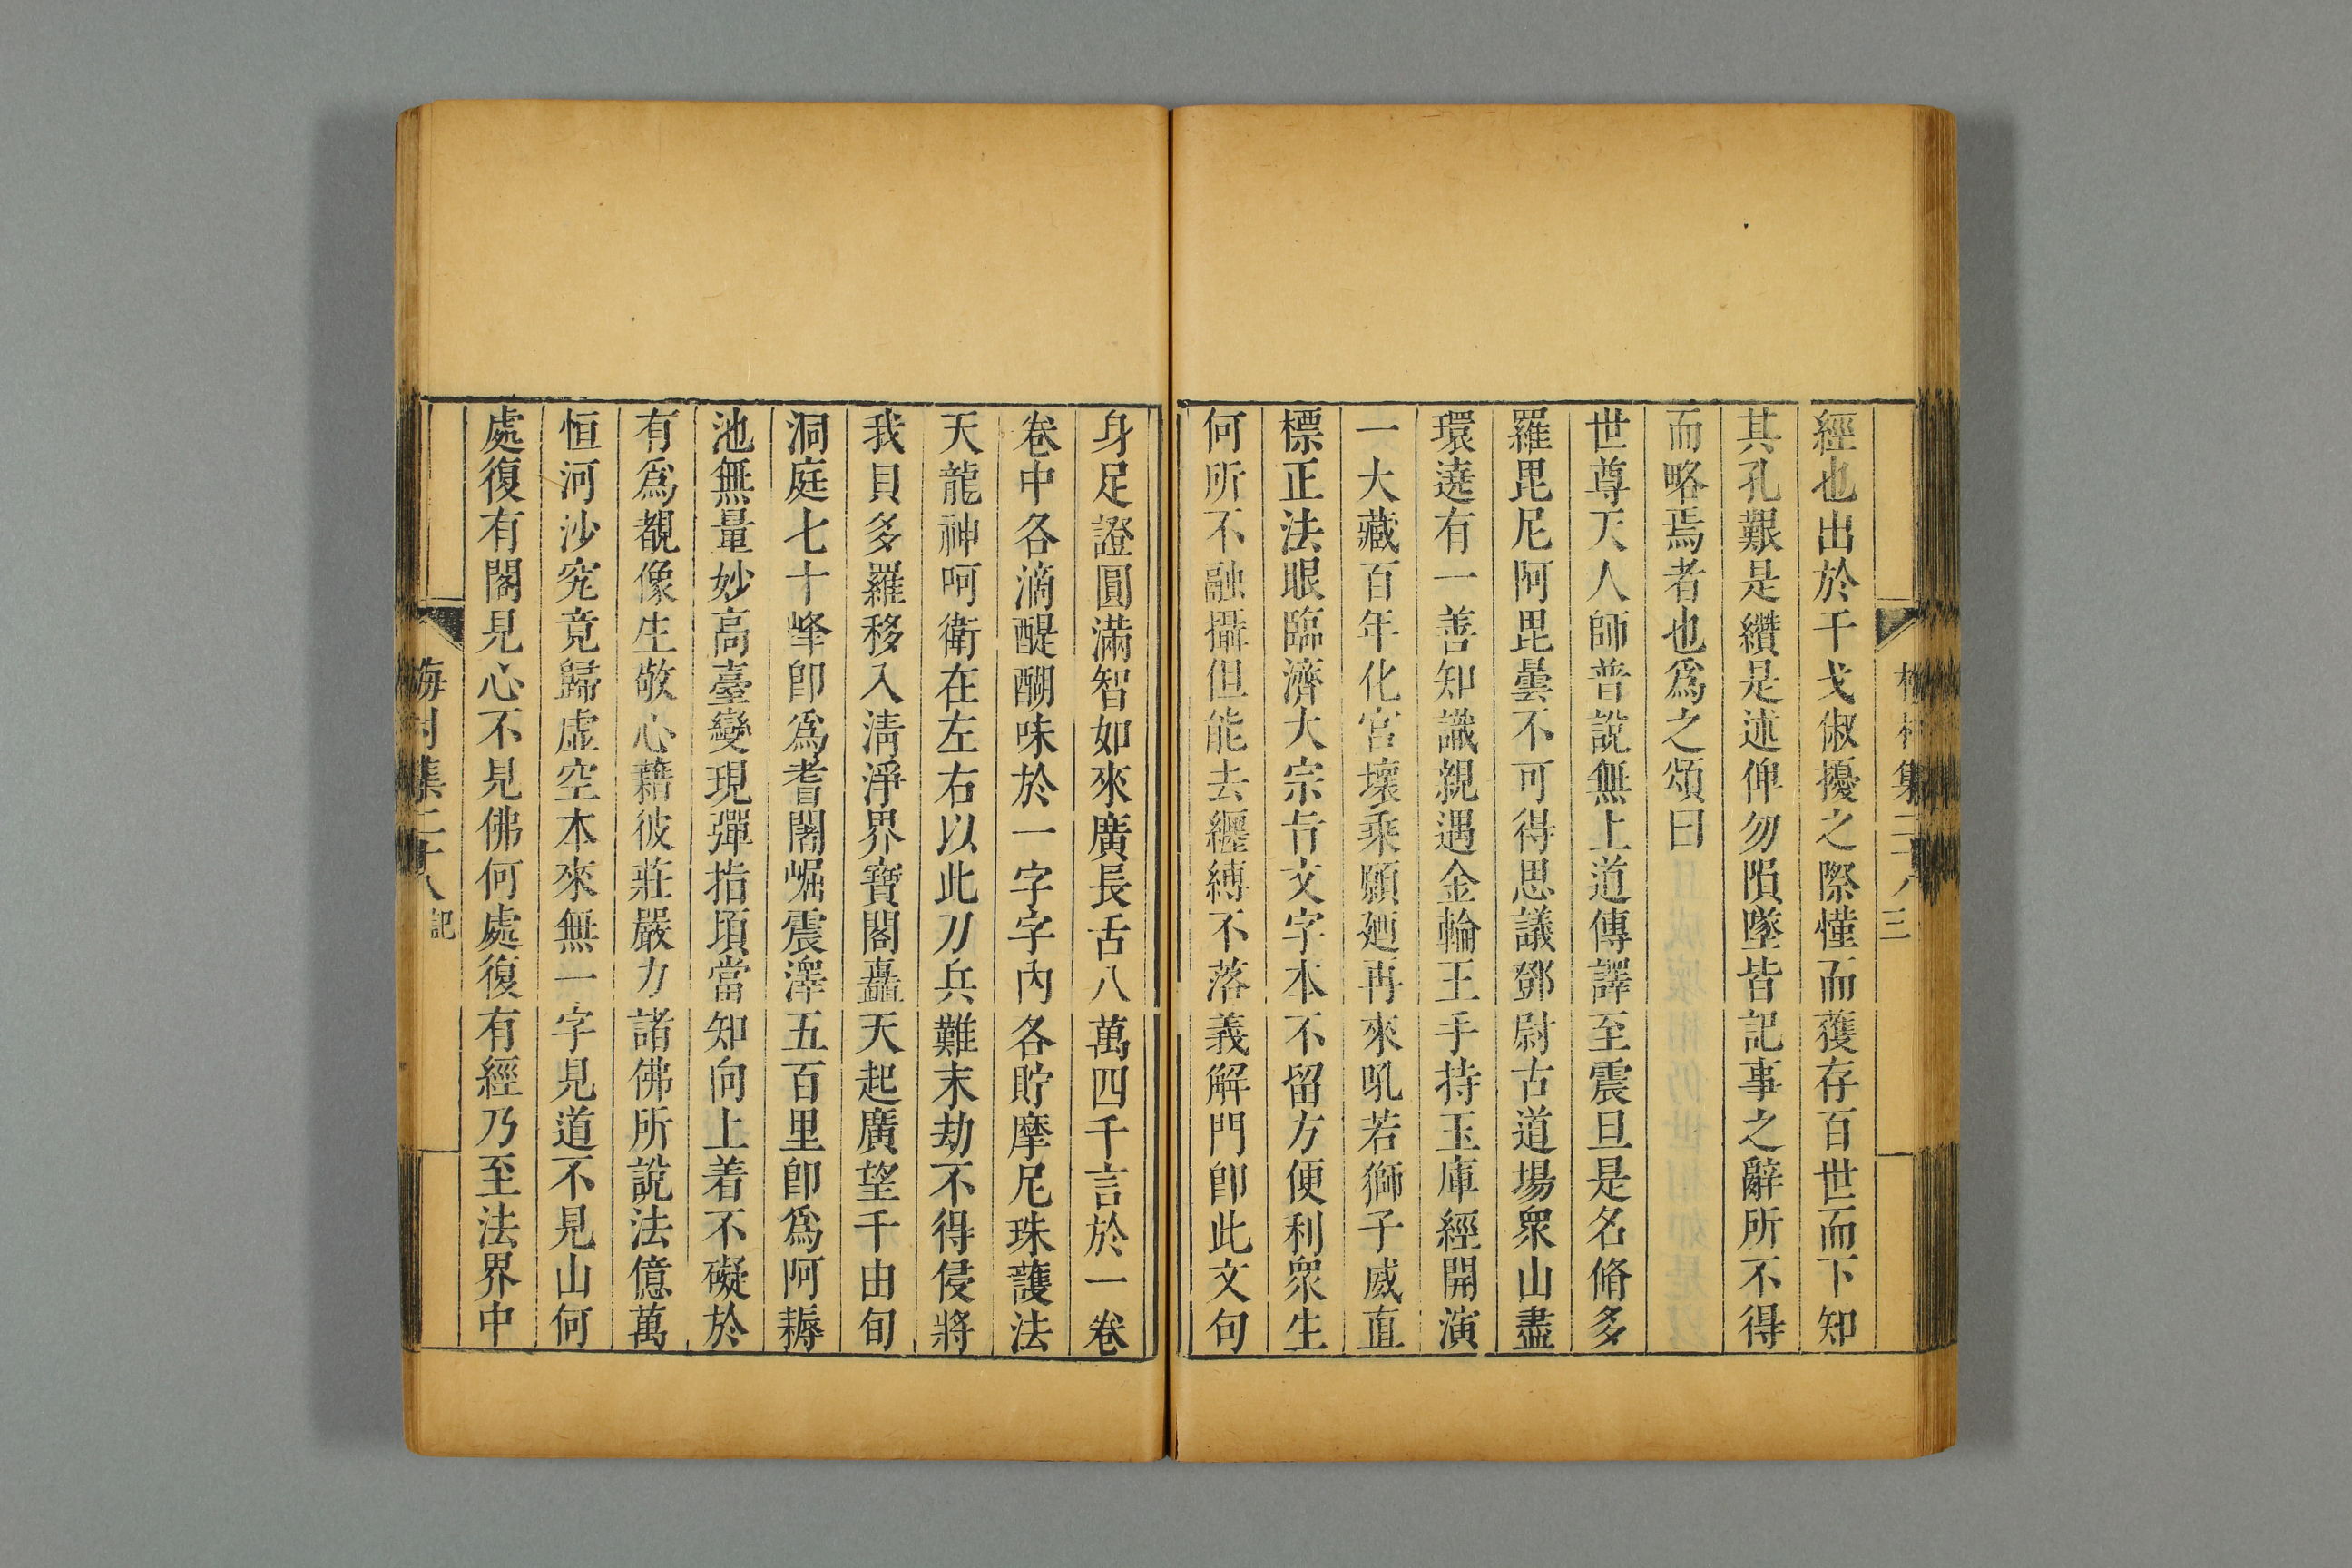 經也出於干戈俶擾之際慬而獲存百世而下知
其孔艱是纘是述俾勿隕墜皆記事之辭所不得
而略焉者也爲之頌曰
世尊天人師普說無上道傳譯至震旦是名脩多
羅毘尼阿毘曇不可得思議鄧尉古道場衆山盡
環遶有一善知識親遇金輪王手持玉庫經開演
一大藏百年化宮壞乘願廼再來吼若獅子威直
標正法眼臨濟大宗旨文字本不留方便利衆生
何所不融攝但能去纏縛不落義解門卽此文句
身足證圓滿智如來廣長舌八萬四千言於一卷
卷中各滴醍醐味於一字字內各貯摩尼珠護法
天龍神呵衛在左右以此刀兵難末劫不得侵將
我貝多羅移入淸淨界寶閣矗天起廣望千由旬
洞庭七十峰卽爲耆闍崛震澤五百里卽爲阿耨
池無量妙高臺變現彈指頃當知向上着不礙於
有爲覩像生敬心藉彼莊嚴力諸佛所說法億萬
恒河沙究竟歸虛空本來無一字見道不見山何
處復有閣見心不見佛何處復有經乃至法界中
梅村集二十八 記